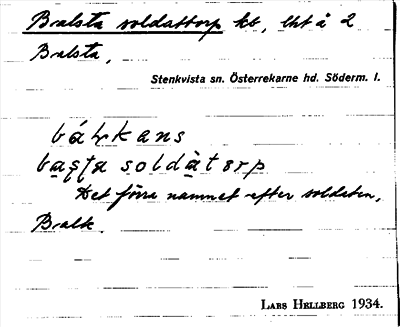 Bralsta soldattorp kt, lht å 2
Bralsta,
Stenkvista sn. Österrekarne hd. Söderm. l.
soldàtorp
Det förra namnet efter soldaten,
Bralk.
Lars Hellberg 1934.